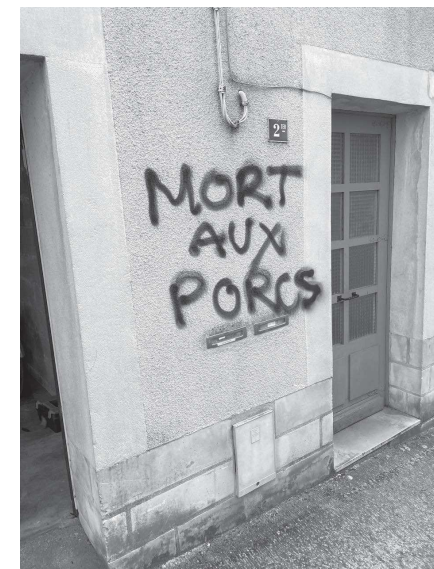 2
MORT
AUX
PORCS